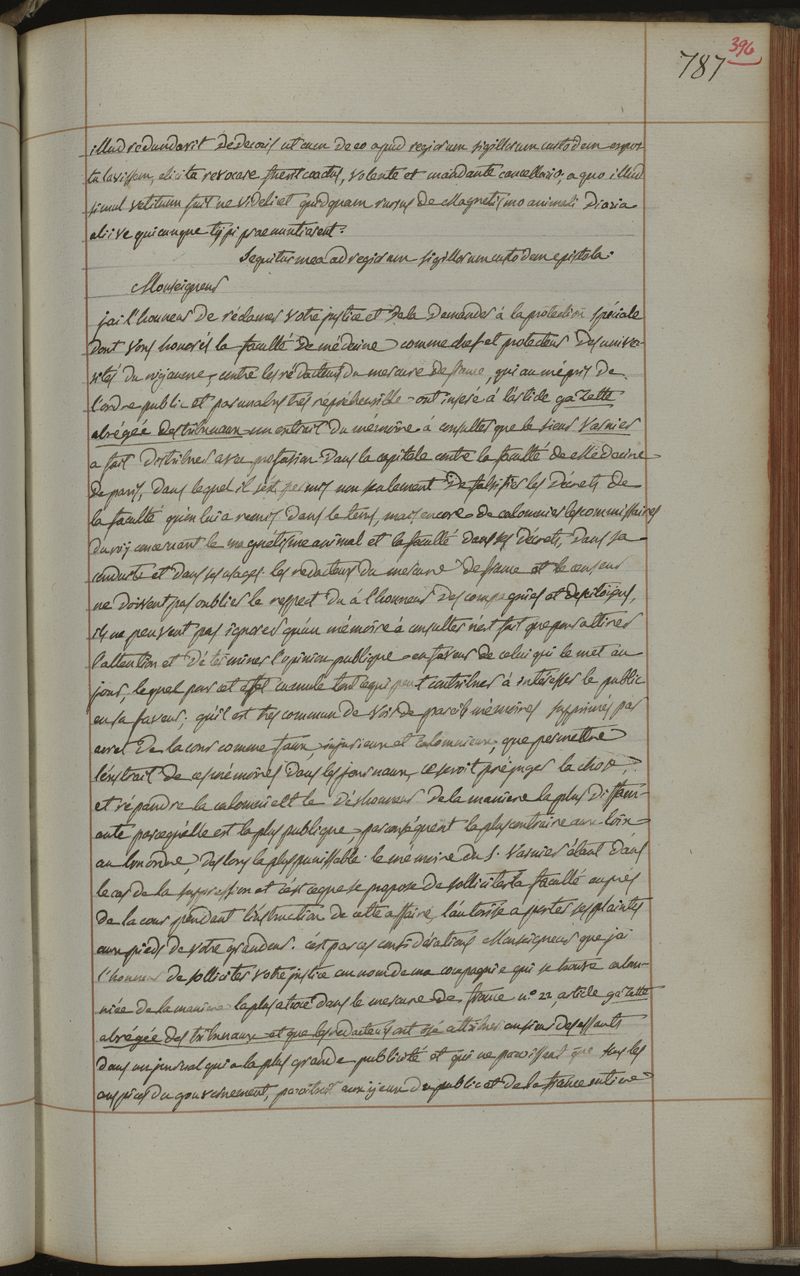 396
787
illud redundarit dedecoris ut cum de eo apud regiorum sigillorum custodem expos
tulavissem, elicita revocare fuerit coactus, volente et mandante cancellario, a quo illud
simul vetitum fuit ne videlicet quidquam rursus de Magnetismo animali diaria
alii ve quicunque typi praenuntiarent.
Sequitur mea ad regiorum sigillorum custodem epistola.
Monseigneur
j'ai l'honneur de réclamer votre justice et de la demander à la protection spéciale
dont vous honorés la faculté de médecine comme chef et protecteur des univer-
sités du royaume, contre les rédacteurs du mercure de france, qui au mépris de
l'ordre public et par un abus très repréhensible ont inséré à l'article gazette
abrégée des tribunaux un extrait du mémoire à consulter que le sieur Varnier
a fait distribuer avec profusion dans la capitale contre la faculté de Médecine
de paris, dans lequel il s'est permis non seulement de falsifier les décrets de
la faculté qu'on lui a remis dans le tems, mais encore de calomnier les commissaires
du roy concernant le magnétisme animal et la faculté dans ses décrets, dans sa
conduite et dans ses usages. les redacteurs du mercure de france et le censeur
ne doivent pas oublier le respect du à l'honneur des compagnies et des citoiens,
ils ne peuvent pas ignorer qu'un mémoire à consulter n'est fait que pour attirer
l'attention et déterminer l'opinion publique en faveur de celui qui le met au
jour, lequel pour cet effet cumule tout ce qui peut contribuer à intéresser le public
en sa faveur. qu'il est très commun de voir de pareils mémoires supprimés par
arret de la cour comme faux, injurieux et calomnieux, que permettre
l'extrait de ces mémoires dans les journaux, ce seroit préjuger la chose,
et répandre la calomnie et le deshonneur de la maniere la plus diffam-
ante parcequ'elle est la plus publique, par conséquent la plus contraire aux loix
au bon ordre, des lors la plus punissable. le memoire du S. Varnier étant dans
le cas de la suppression et c'est ce que se propose de solliciter la faculté auprès
de la cour pendant l'instruction de cette affaire, l'autorise a porter ses plaintes
aux pieds de votre grandeur. c'est par ces considérations Monseigneur que j'ai
l'honneur de solliciter votre justice au nom de ma compagnie qui se trouve calom-
niée de la maniere la plus atroce dans le mercure de france n.o 22 article gazette
abrégée des tribunaux et que les redacteurs ont osé attribuer
dans un journal qui a la plus grande publicité et qui ne paroissant que sous les
auspices du gouvernement, paroitroit aux yeux du public et de la france entiere